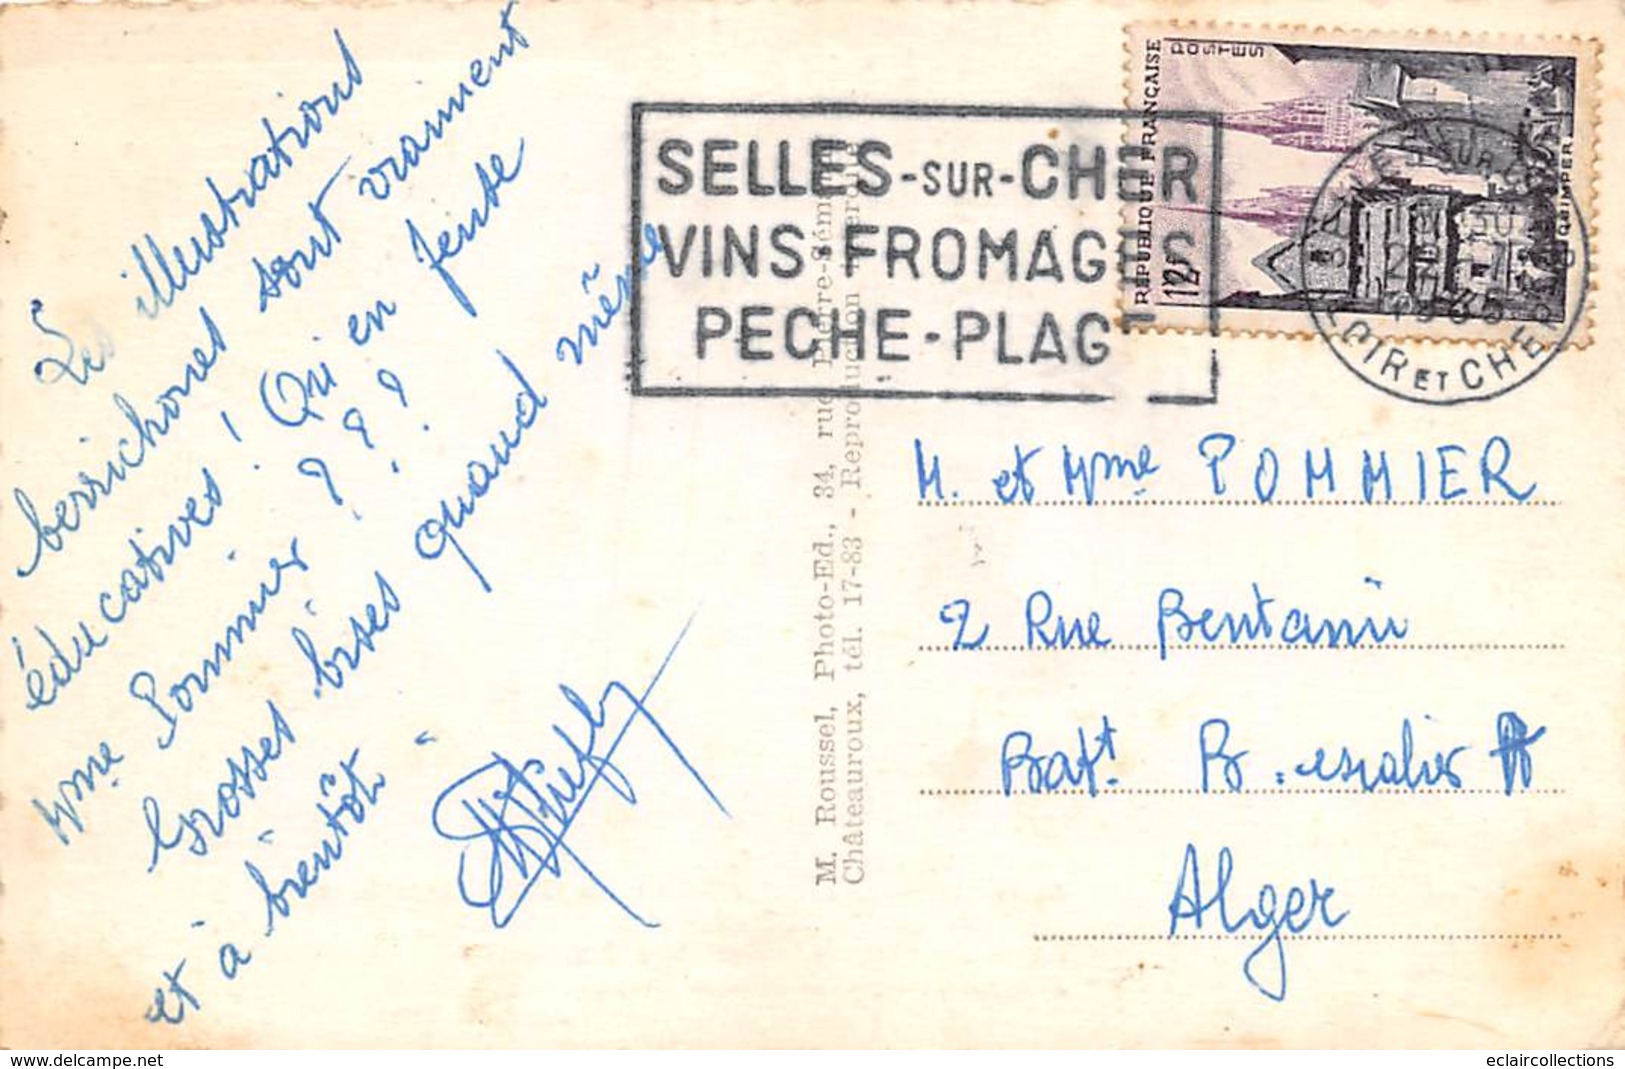 Les illustrations
berrichones sont vraiment
éducatives ! Qui en pense
Mme Pommier ? ? ?
Grosses bises quand même
et à bientôt
SELLES-SUR-CHER
VINS FROMAG
PECHE-PLAG
REPUBLIQUE FRANÇAISE
POSTES
12F
QUIMPER
LOIR ET CHER
M. Roussel, Photo-Ed., 34, rue Pierre-Sém
Châteauroux, tél. 17-83 - Reproduction interdite
M. et Mme POMMIER
2 Rue Bentami
Bat. B. escalier
Alger
www.delcampe.net
eclaircollections